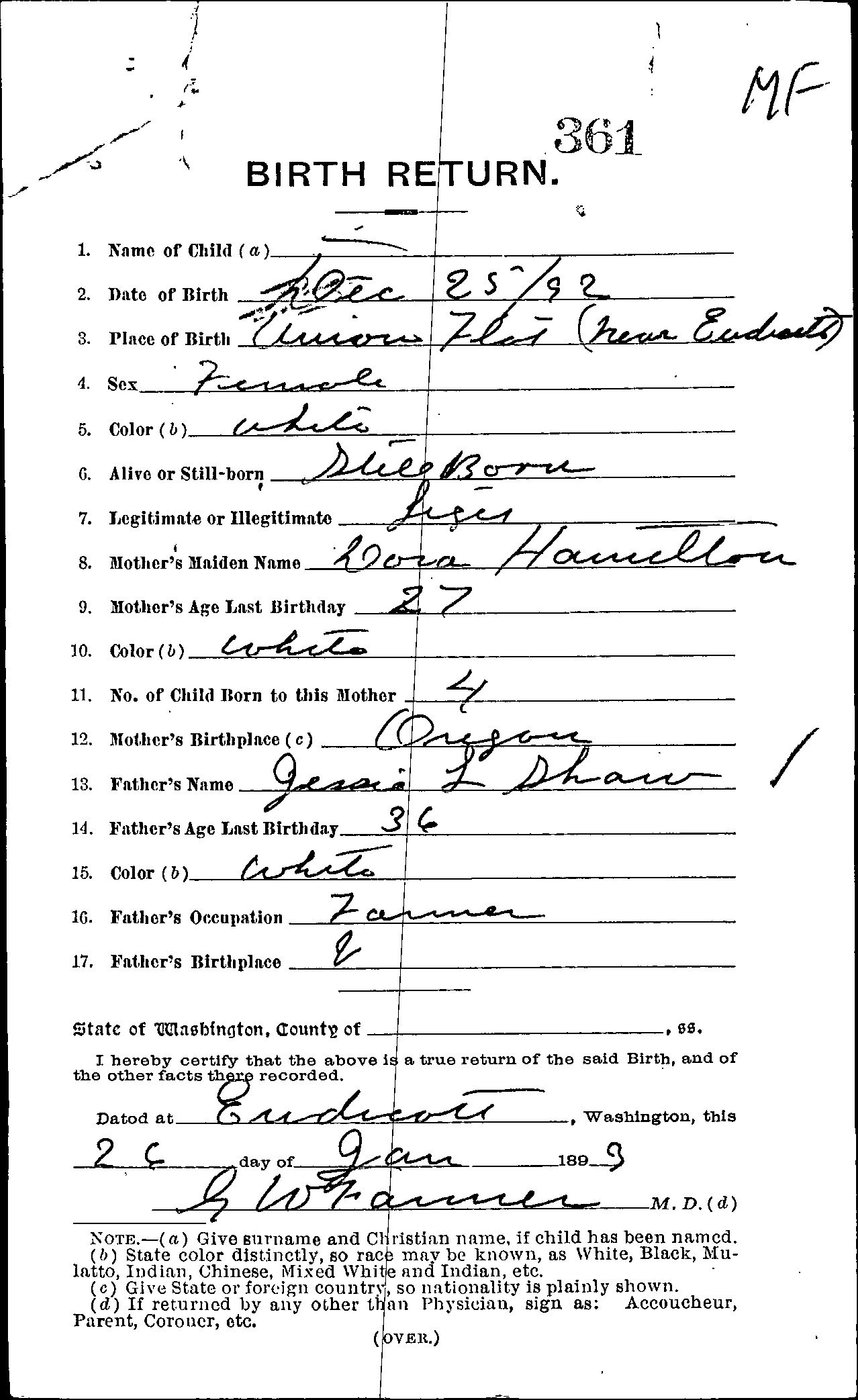 MF
361
BIRTH RETURN.
1. Name of Child (a)
2. Date of Birth Dec 25/92
3. Place of Birth Union Flat (near Endicott)
4. Sex Female
5. Color (b) White
6. Alive or Still-born Still Born
7. Legitimate or Illegitimate Legit
8. Mother's Maiden Name Dora Hamilton
9. Mother's Age Last Birthday 27
10. Color (b) White
11. No. of Child Born to this Mother 4
12. Mother's Birthplace (c) Oregon
13. Father's Name Jessie L Shaw
14. Father's Age Last Birthday 36
15. Color (b) White
16. Father's Occupation Farmer
17. Father's Birthplace
State of Washington, County of , ss.
I hereby certify that the above is a true return of the said Birth, and of
the other facts there recorded.
Dated at Endicott, Washington, this
26 day of Jan 1893
G W Farmer M. D. (d)
NOTE.—(a) Give surname and Christian name, if child has been named.
(b) State color distinctly, so race may be known, as White, Black, Mu-
latto, Indian, Chinese, Mixed White and Indian, etc.
(c) Give State or foreign country, so nationality is plainly shown.
(d) If returned by any other than Physician, sign as: Accoucheur,
Parent, Coroner, etc.
(OVER.)